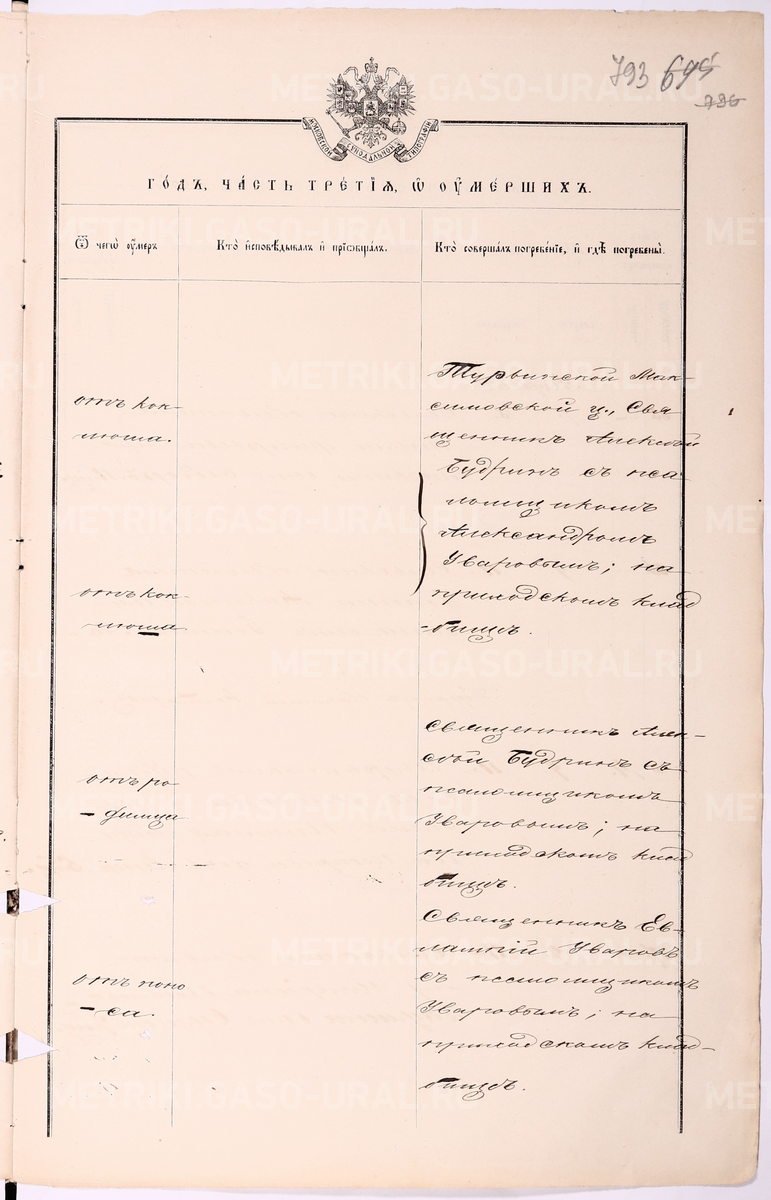 793 695
796
МОСКОВСКОЙ СѴНОДАЛЬНОЙ ТИПОГРАФІИ
ГО́ДЪ, ЧА́СТЬ ТРЕ́ТІѦ, Ѽ ОУ҆МЕ́РШИХЪ.
Ѿ чегѡ̀ ᲂу҆́меръ
Кто̀ и҆сповѣ́дывалъ и҆ прїѡбща́лъ.
Кто̀ соверша́лъ погребе́нїе, и҆ гдѣ̀ погребены̀.
отъ кок-
люша.
Турьинской Мак-
симовской ц., Свя
щенникъ Алексѣй
Будринъ съ пса
ломщикомъ
Александромъ
Уваровымъ; на
приходскомъ клад
-бищѣ.
отъ кок-
люша
отъ ро
-димца
священникъ Алек-
сѣй Будринъ съ
псаломщикомъ
Уваровымъ; на
приходскомъ клад
бищѣ.
отъ поно
-са.
Священникъ Ев-
лампій Уваровъ
съ псаломщикомъ
Уваровымъ; на
приходскомъ клад-
бищѣ.
METRIKI.GASO-URAL.RU